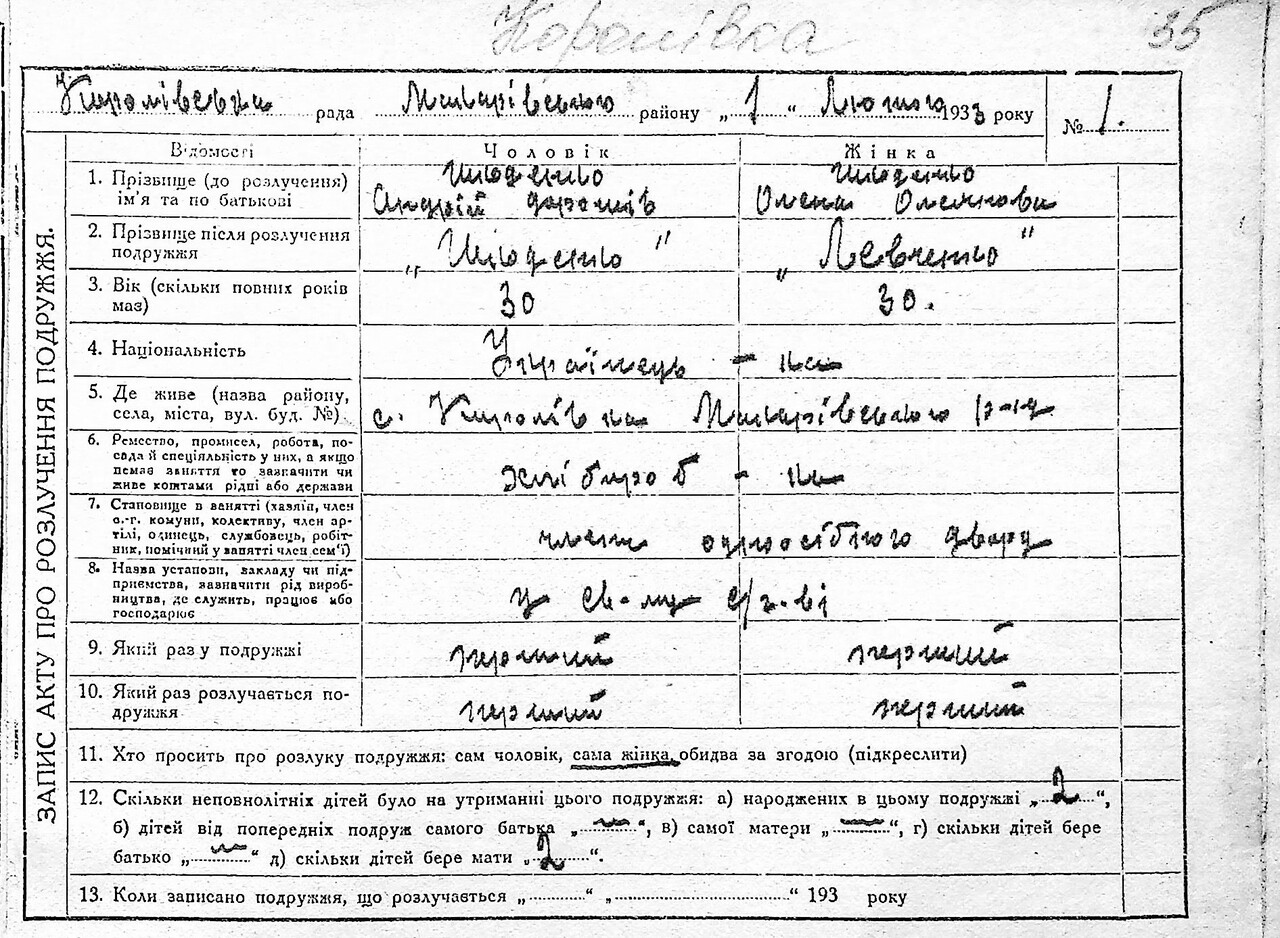 Королівка
35
Королівська рада Макарівського району „1“ Лютого 1933 року
№ 1.
Відомості Чоловік Жінка
1. Прізвище (до розлучення) ім'я та по батькові
Андрій
Олена
2. Прізвище після розлучення подружжя
„Левченко“
3. Вік (скільки повних років маз) 30 30.
4. Національність Українець - ка
5. Де живе (назва району, села, міста, вул. буд. №) с. Королівка Макарівського р-ну
6. Ремество, промисел, робота, посада й спеціяльність у них, а якщо немає заняття то зазначити чи живе коштами рідні або держави
хлібороб - ка
7. Становище в занятті (хазяїн, член с.-г. комуни, колективу, член артілі, одинець, службовець, робітник, помічний у занятті член сем'ї)
члени одноосібного двору
8. Назва установи, закладу чи підприємства, зазначити рід виробництва, де служить, працює або господарює
у св-му с/г-ві
9. Який раз у подружжі перший перший
10. Який раз розлучається подружжя перший перший
11. Хто просить про розлуку подружжя: сам чоловік, сама жінка, обидва за згодою (підкреслити)
12. Скільки неповнолітніх дітей було на утриманні цього подружжя: а) народжених в цьому подружжі „2“,
б) дітей від попередніх подруж самого батька „—“, в) самої матери „—“, г) скільки дітей бере
батько „—“ д) скільки дітей бере мати „2“.
13. Коли записано подружжя, що розлучається „..........“ „....................“ 193 року
ЗАПИС АКТУ ПРО РОЗЛУЧЕННЯ ПОДРУЖЖЯ.